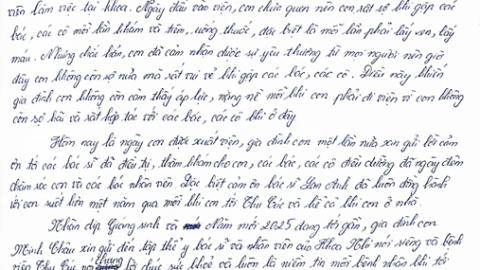 đến làm việc tại khoa. Ngày đầu vào viện, con chưa quen nên con rất sợ khi gặp các
bác, các cô mỗi lần khám và tiêm, uống thuốc, đặc biệt là mỗi lần phải lấy ven, lấy
máu. Nhưng chắc hẳn, con đã cảm nhận được sự yêu thương từ mọi người nên giờ
đây con không còn sợ nữa mà rất vui vẻ khi gặp các bác, các cô. Điều này khiến
gia đình con không còn cảm thấy áp lực, nặng nề mỗi khi con phải đi viện vì con không
còn sợ hãi và rất hợp tác với các bác, các cô khi ở đây
Hôm nay là ngày con được xuất viện, gia đình con một lần nữa xin gửi lời cảm
ơn tới các bác sĩ đã điều trị, thăm khám cho con, các bác, các cô điều dưỡng đã ngày đêm
chăm sóc con và các bác nhân viên. Đặc biệt cảm ơn bác sĩ Lan Anh đã luôn đồng hành
với con suốt liền một năm qua mỗi khi con tới Thu Cúc và kể cả khi con ở nhà.
Nhân dịp Giáng sinh và Năm mới 2025 đang tới gần, gia đình con
Minh Châu xin gửi đến tập thể y bác sĩ và nhân viên của Khoa Nhi nói riêng và bệnh
viện Thu Cúc nói chung lời chúc sức khoẻ và luôn là niềm tin mỗi bệnh nhân khi tới